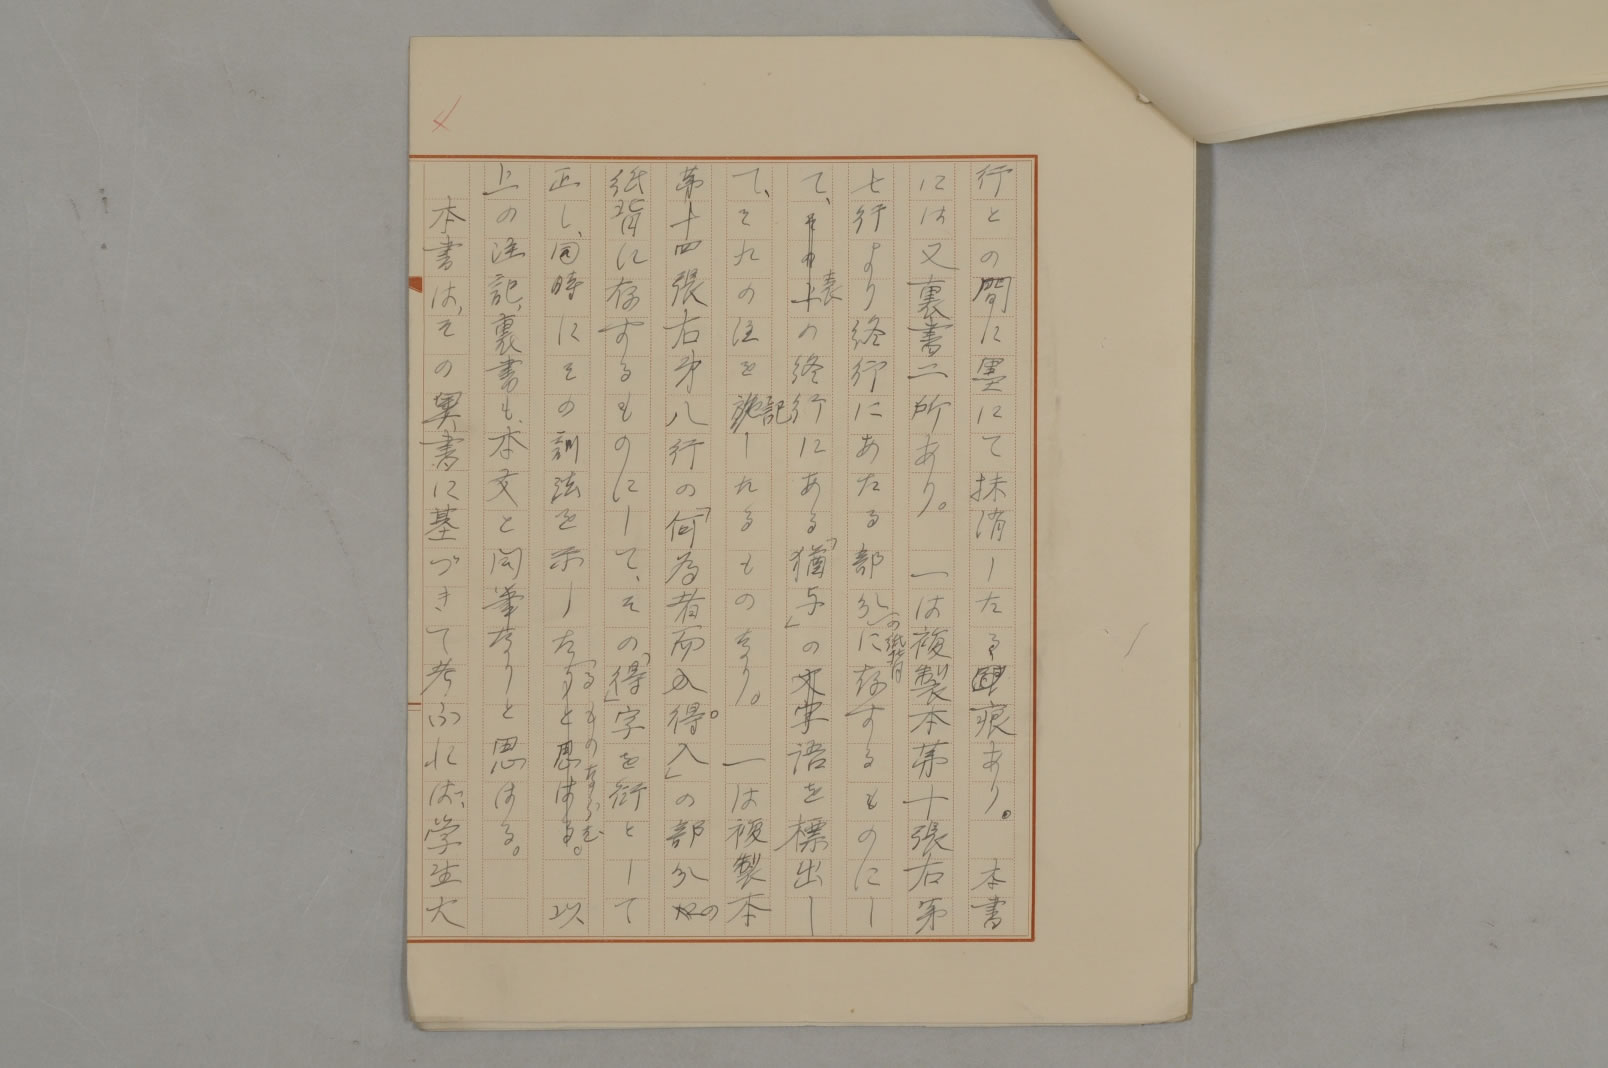 行との間に墨にて抹消したる痕あり。　本書
には又裏書二所あり。　一は複製本第十張右第
七行より終行にあたる部分の紙背に存するものにし
て、表の終行にある「猶与」の語を標出し
て、それの注を記したるものなり。　一は複製本
第十四張右第八行の「何為者而入得。入」の部分の
紙背に存するものにして、その「得」字を衍として
正し、同時にその訓法を示したるものならむ。　以
上の注記、裏書も、本文と同筆なりと思はる。
本書は、その奥書に基づきて考ふれば、学生大